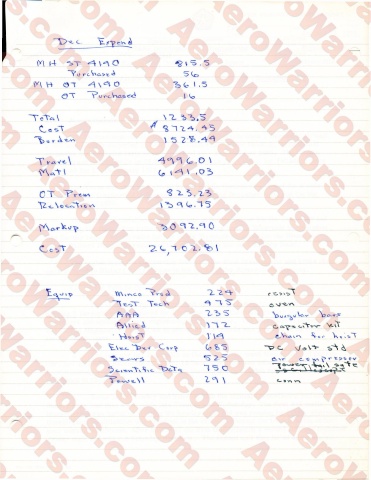 Dec Expend
MH ST 4190 815.5
Purchased 56
MH OT 4190 361.5
OT Purchased 16
Total 1233.5
Cost $ 8724.45
Burden 1528.49
Travel 4996.01
Matl 6141.03
OT Prem 823.23
Relocation 1396.75
Markup 3092.90
Cost 26,702.81
Equip Minco Prod 224 resist
Test Tech 475 oven
AAA 235 burgular bars
Allied 172 capacitor kit
Hoist 119 chain for hoist
Elec Dev Corp 685 DC Volt std
Sears 525 air compressor
Scientific Data 750 Power tail gate
Powell 291 conn
AeroWarriors.com